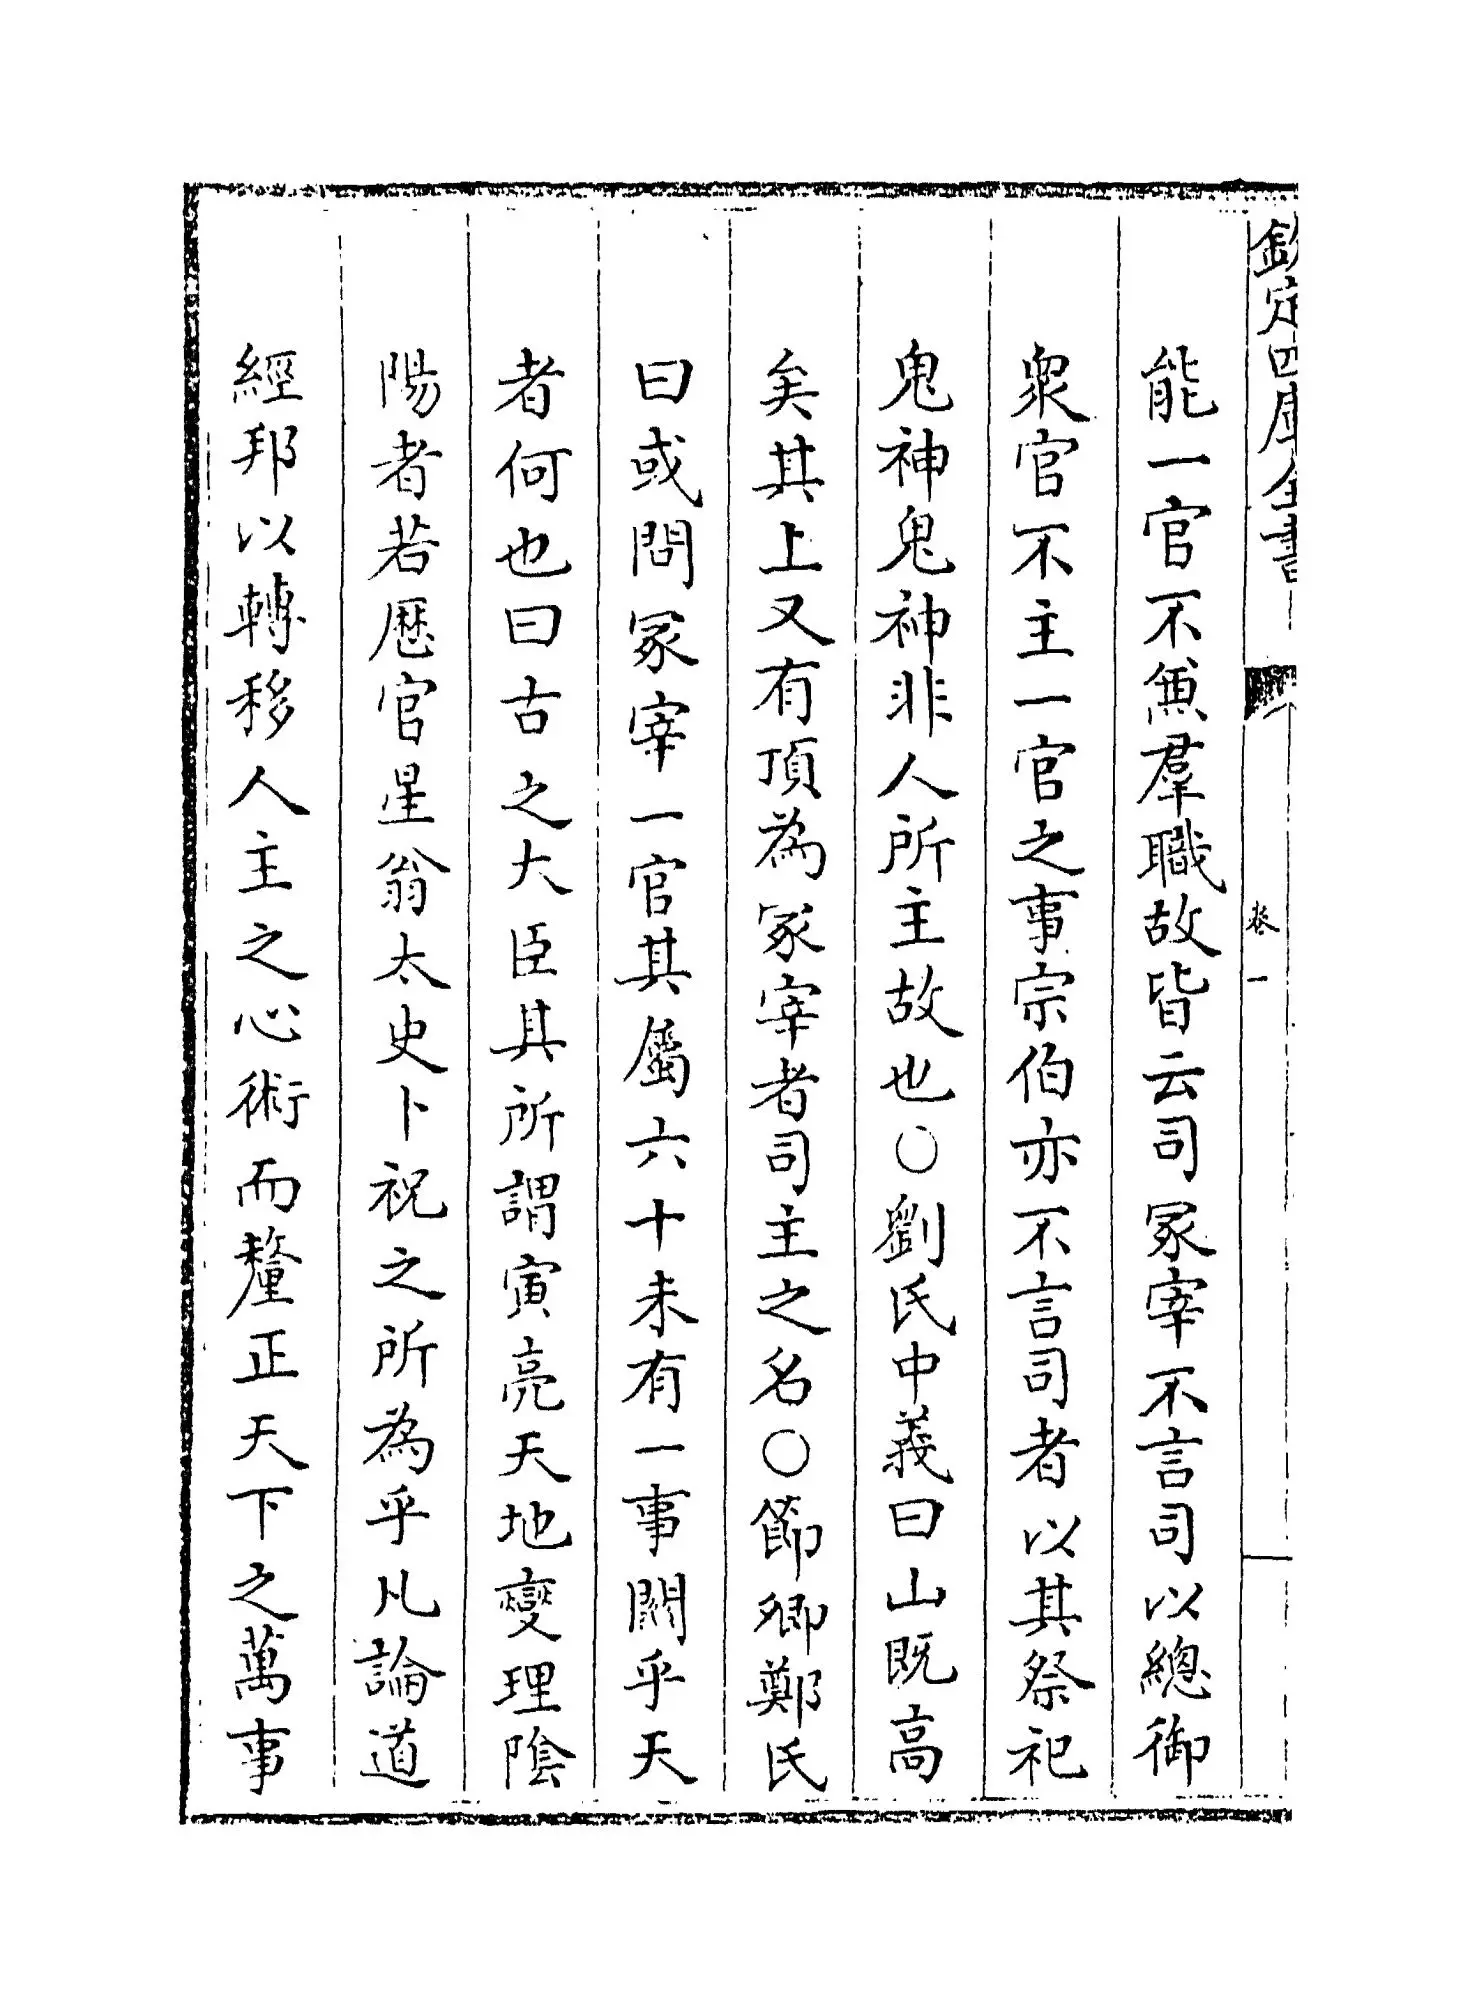 欽定四庫全書
卷一
能一官不兼羣職故皆云司冢宰不言司以總御
衆官不主一官之事宗伯亦不言司者以其祭祀
鬼神鬼神非人所主故也○劉氏中義曰山既高
矣其上又有頂為冢宰者司主之名○節卿鄭氏
曰或問冢宰一官其屬六十未有一事闗乎天
者何也曰古之大臣其所謂寅亮天地燮理隂
陽者若厯官星翁太史卜祝之所為乎凡論道
經邦以轉移人主之心術而釐正天下之萬事